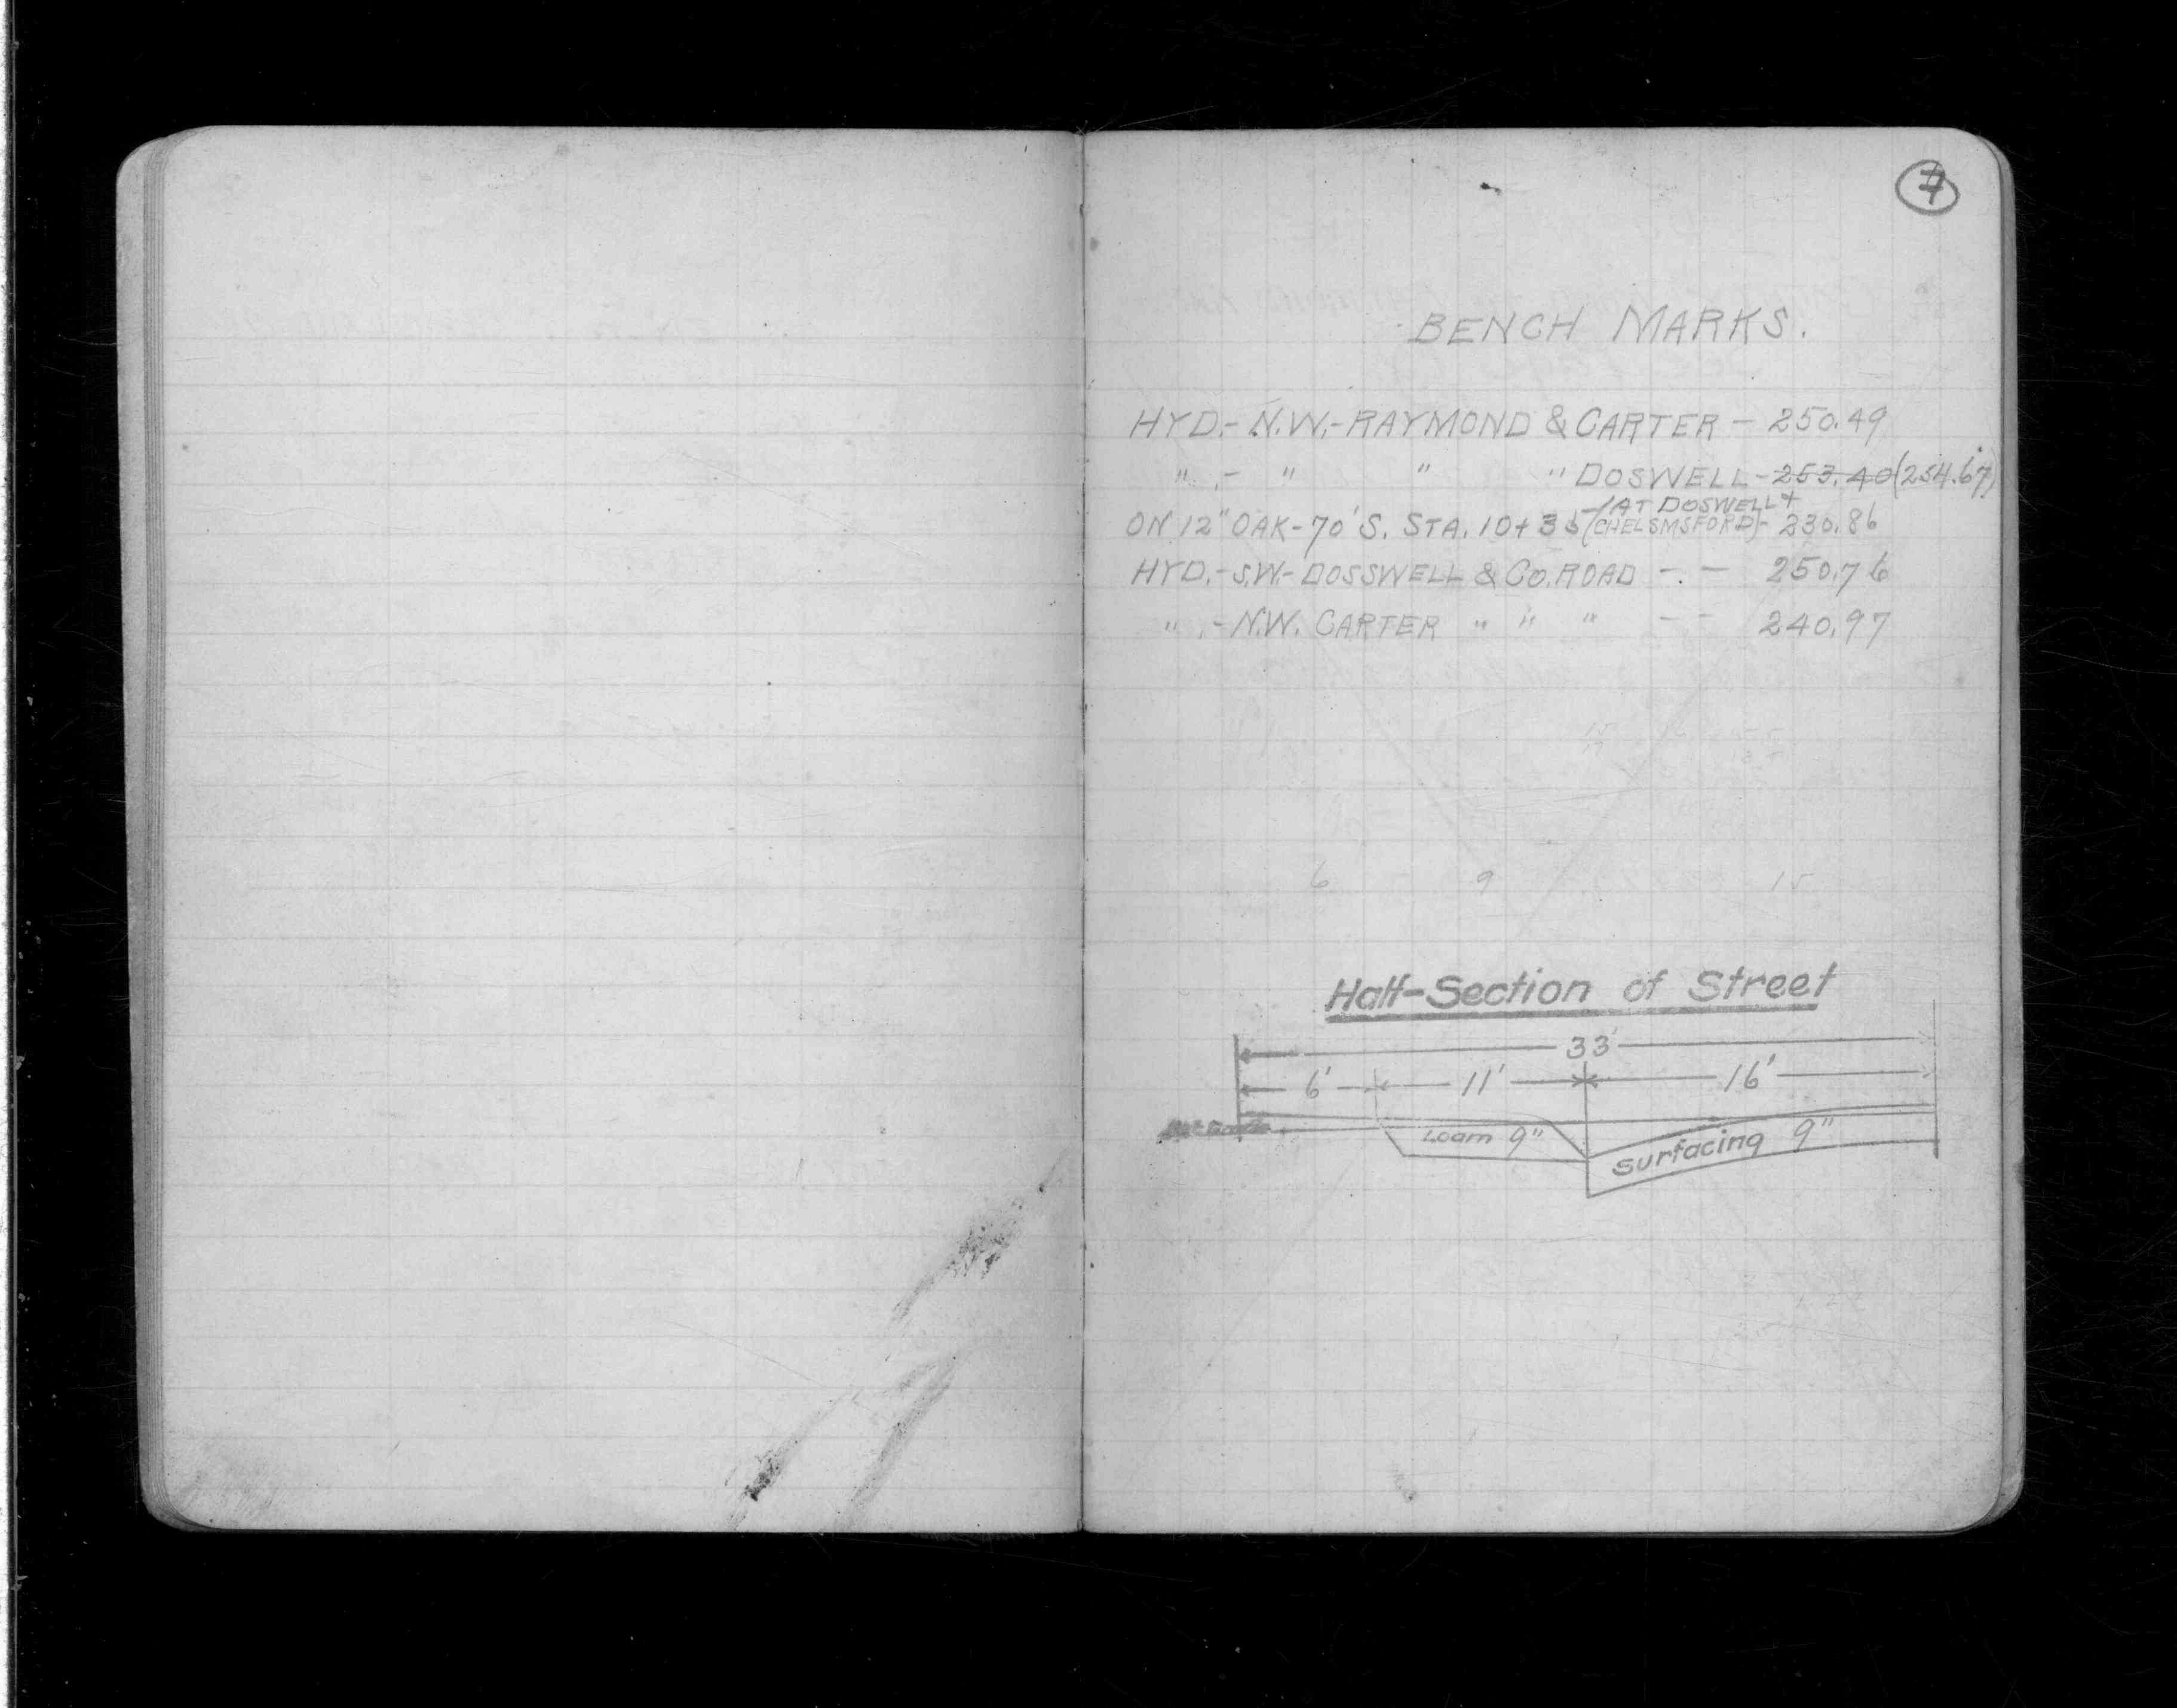 BENCH MARKS.
HYD.- N.W.- RAYMOND & CARTER - 250.49
" - " " " DOSWELL - 253.40 (254.67)
(AT DOSWELL +
ON 12" OAK - 70' S. STA. 10+36 CHELSMSFORD) - 230.86
HYD.- S.W.- DOSSWELL & CO. ROAD - - 250.76
" - N.W. CARTER " " " - - 240.97
6 9 15
Half-Section of Street
33'
6' 11' 16'
Loam 9" Surfacing 9"